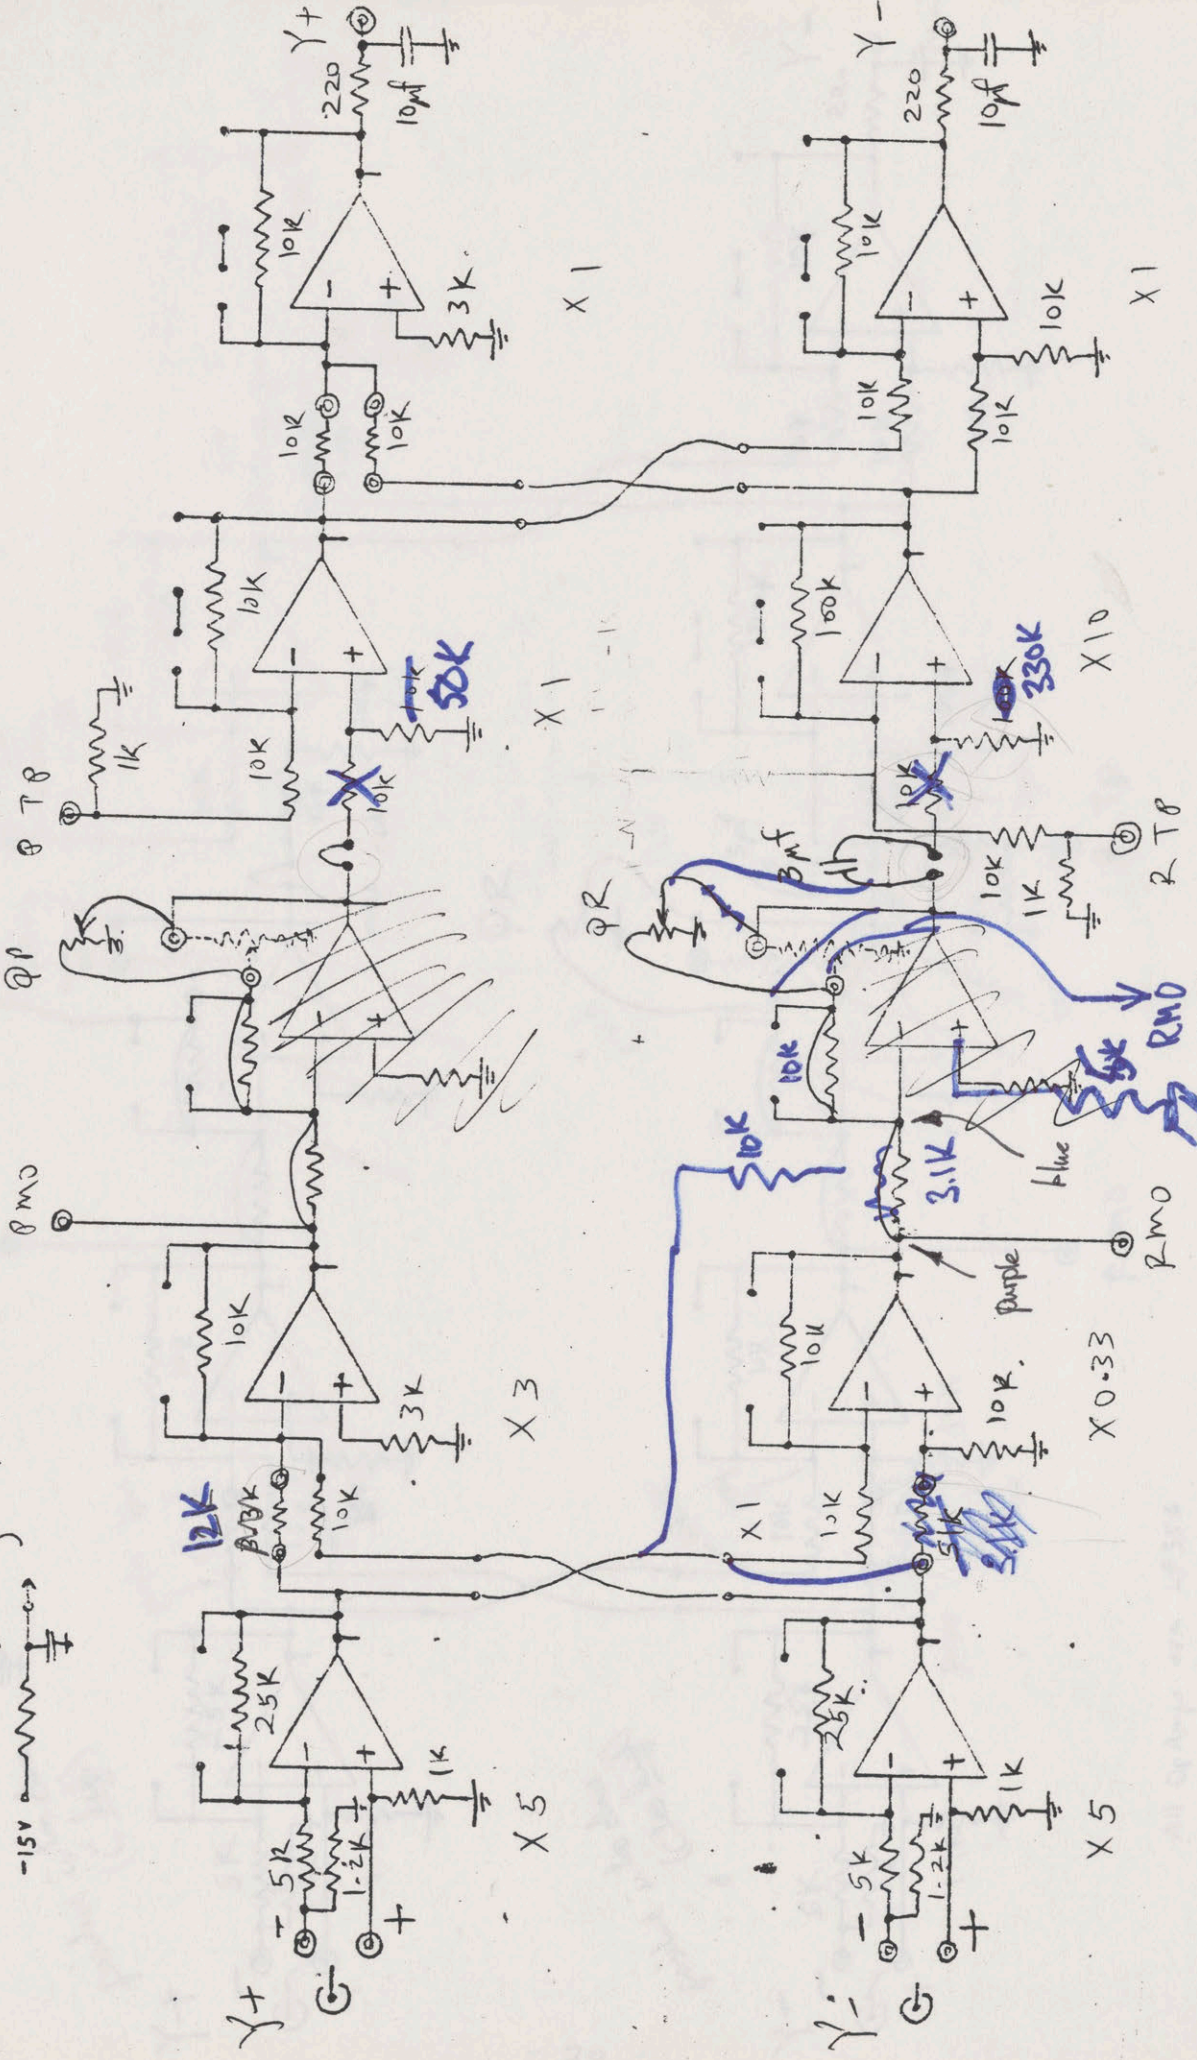 -15V
Y+
G
-
+
5K
1.2K
25K
-
+
1K
X5
12K
3.3K
10K
10K
-
+
3K
X3
PMO
QP
P TP
1K
10K
10K
10K
-
+
50K
X1
10K
10K
10K
-
+
3K
X1
220
10μf
Y+
Y-
G
-
+
5K
1.2K
25K.
-
+
1K
X5
X1
10K
51K
10K
-
+
10K.
X0.33
purple
RMO
10K
3.1K
blue
10K
-
+
RMO
QR
3mf
10K
1K
R TP
10K
100K
-
+
330K
X10
10K
10K
10K
-
+
10K
X1
220
10μf
Y-